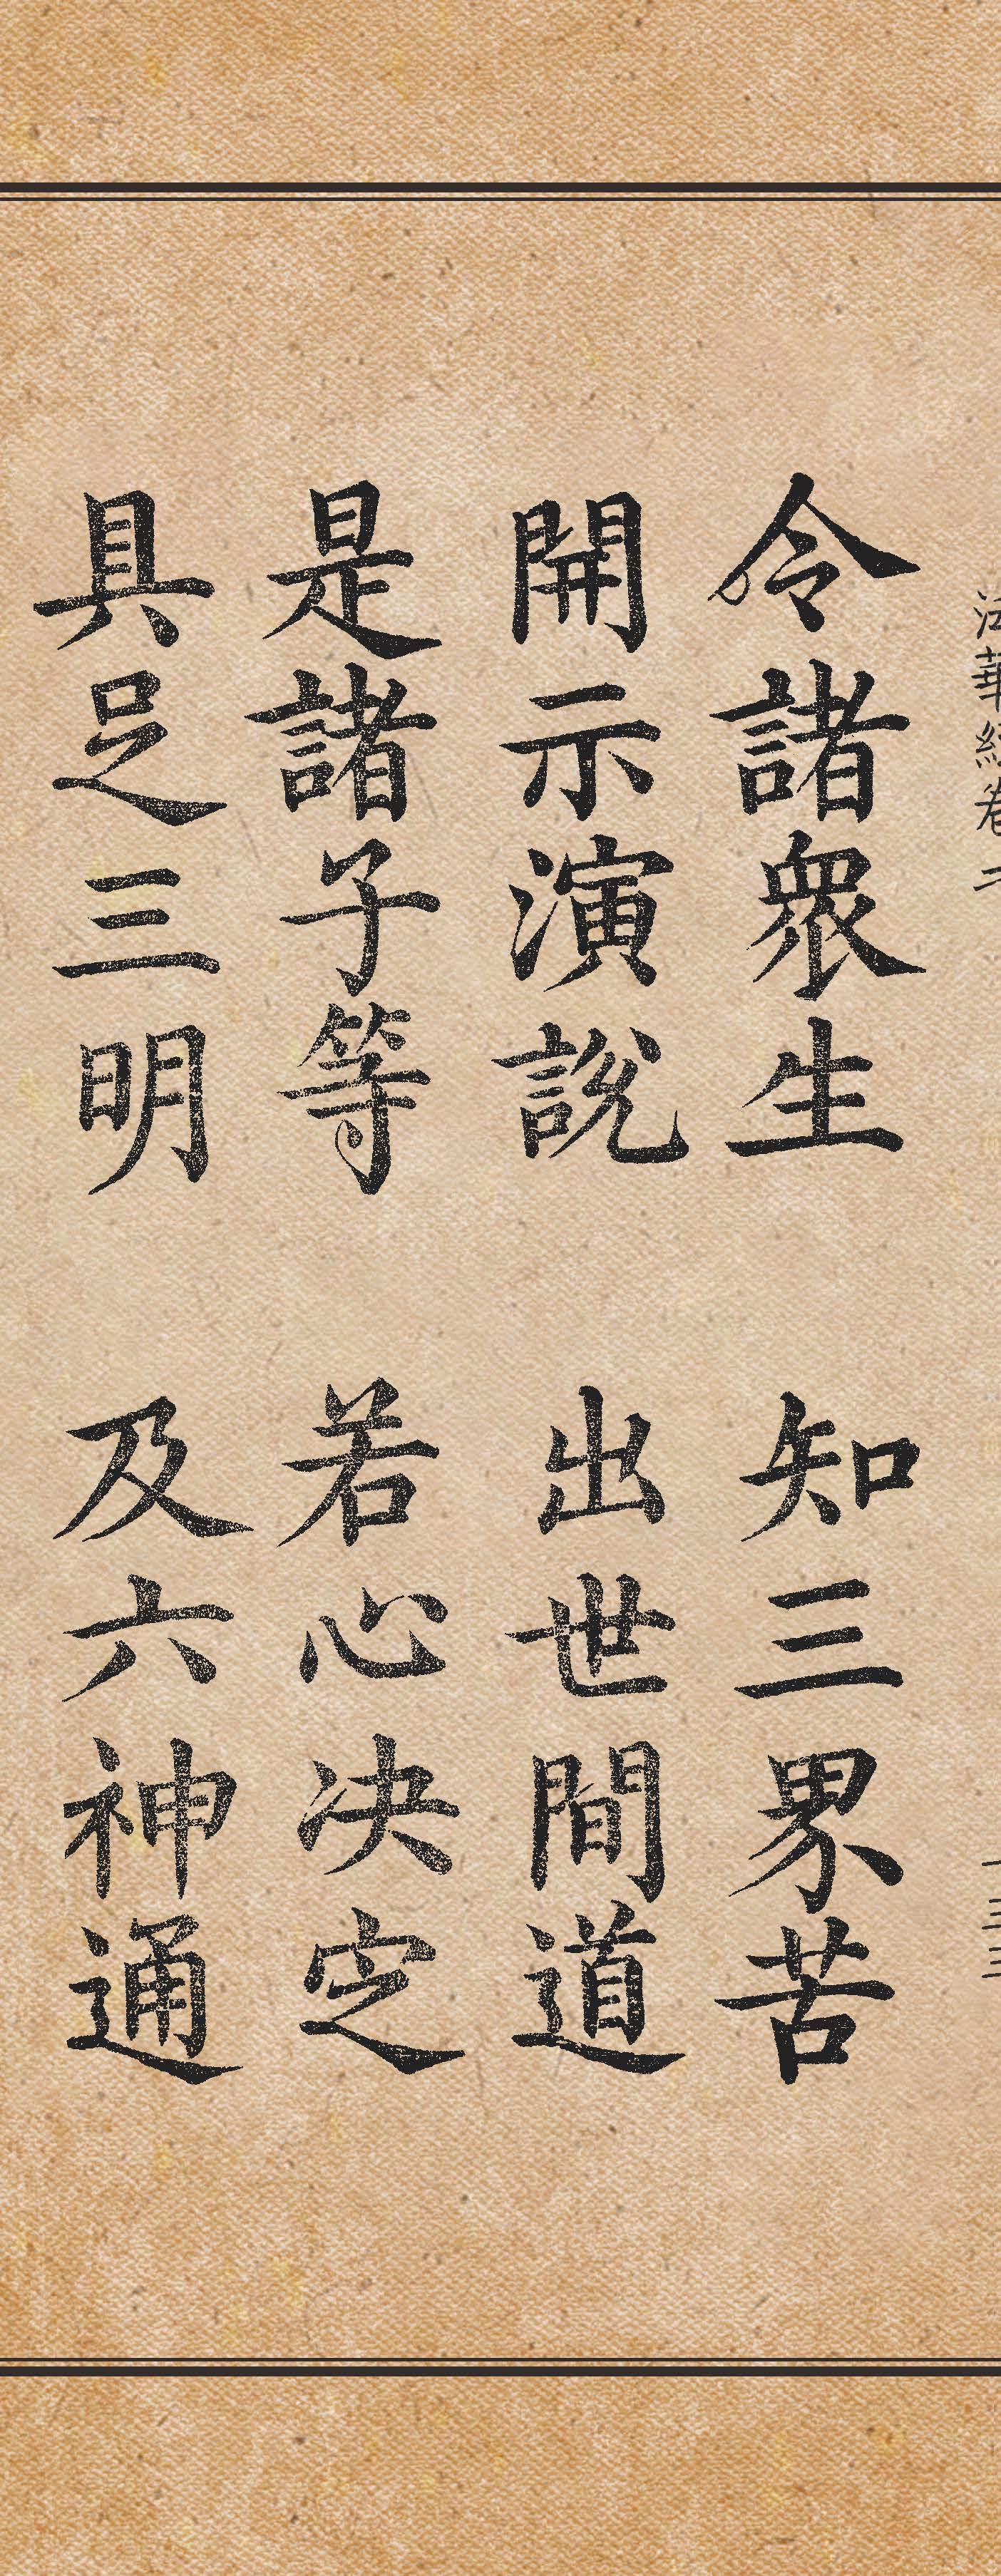 法華經卷二
十三
令諸衆生 知三界苦
開示演說 出世間道
是諸子等 若心决定
具足三明 及六神通